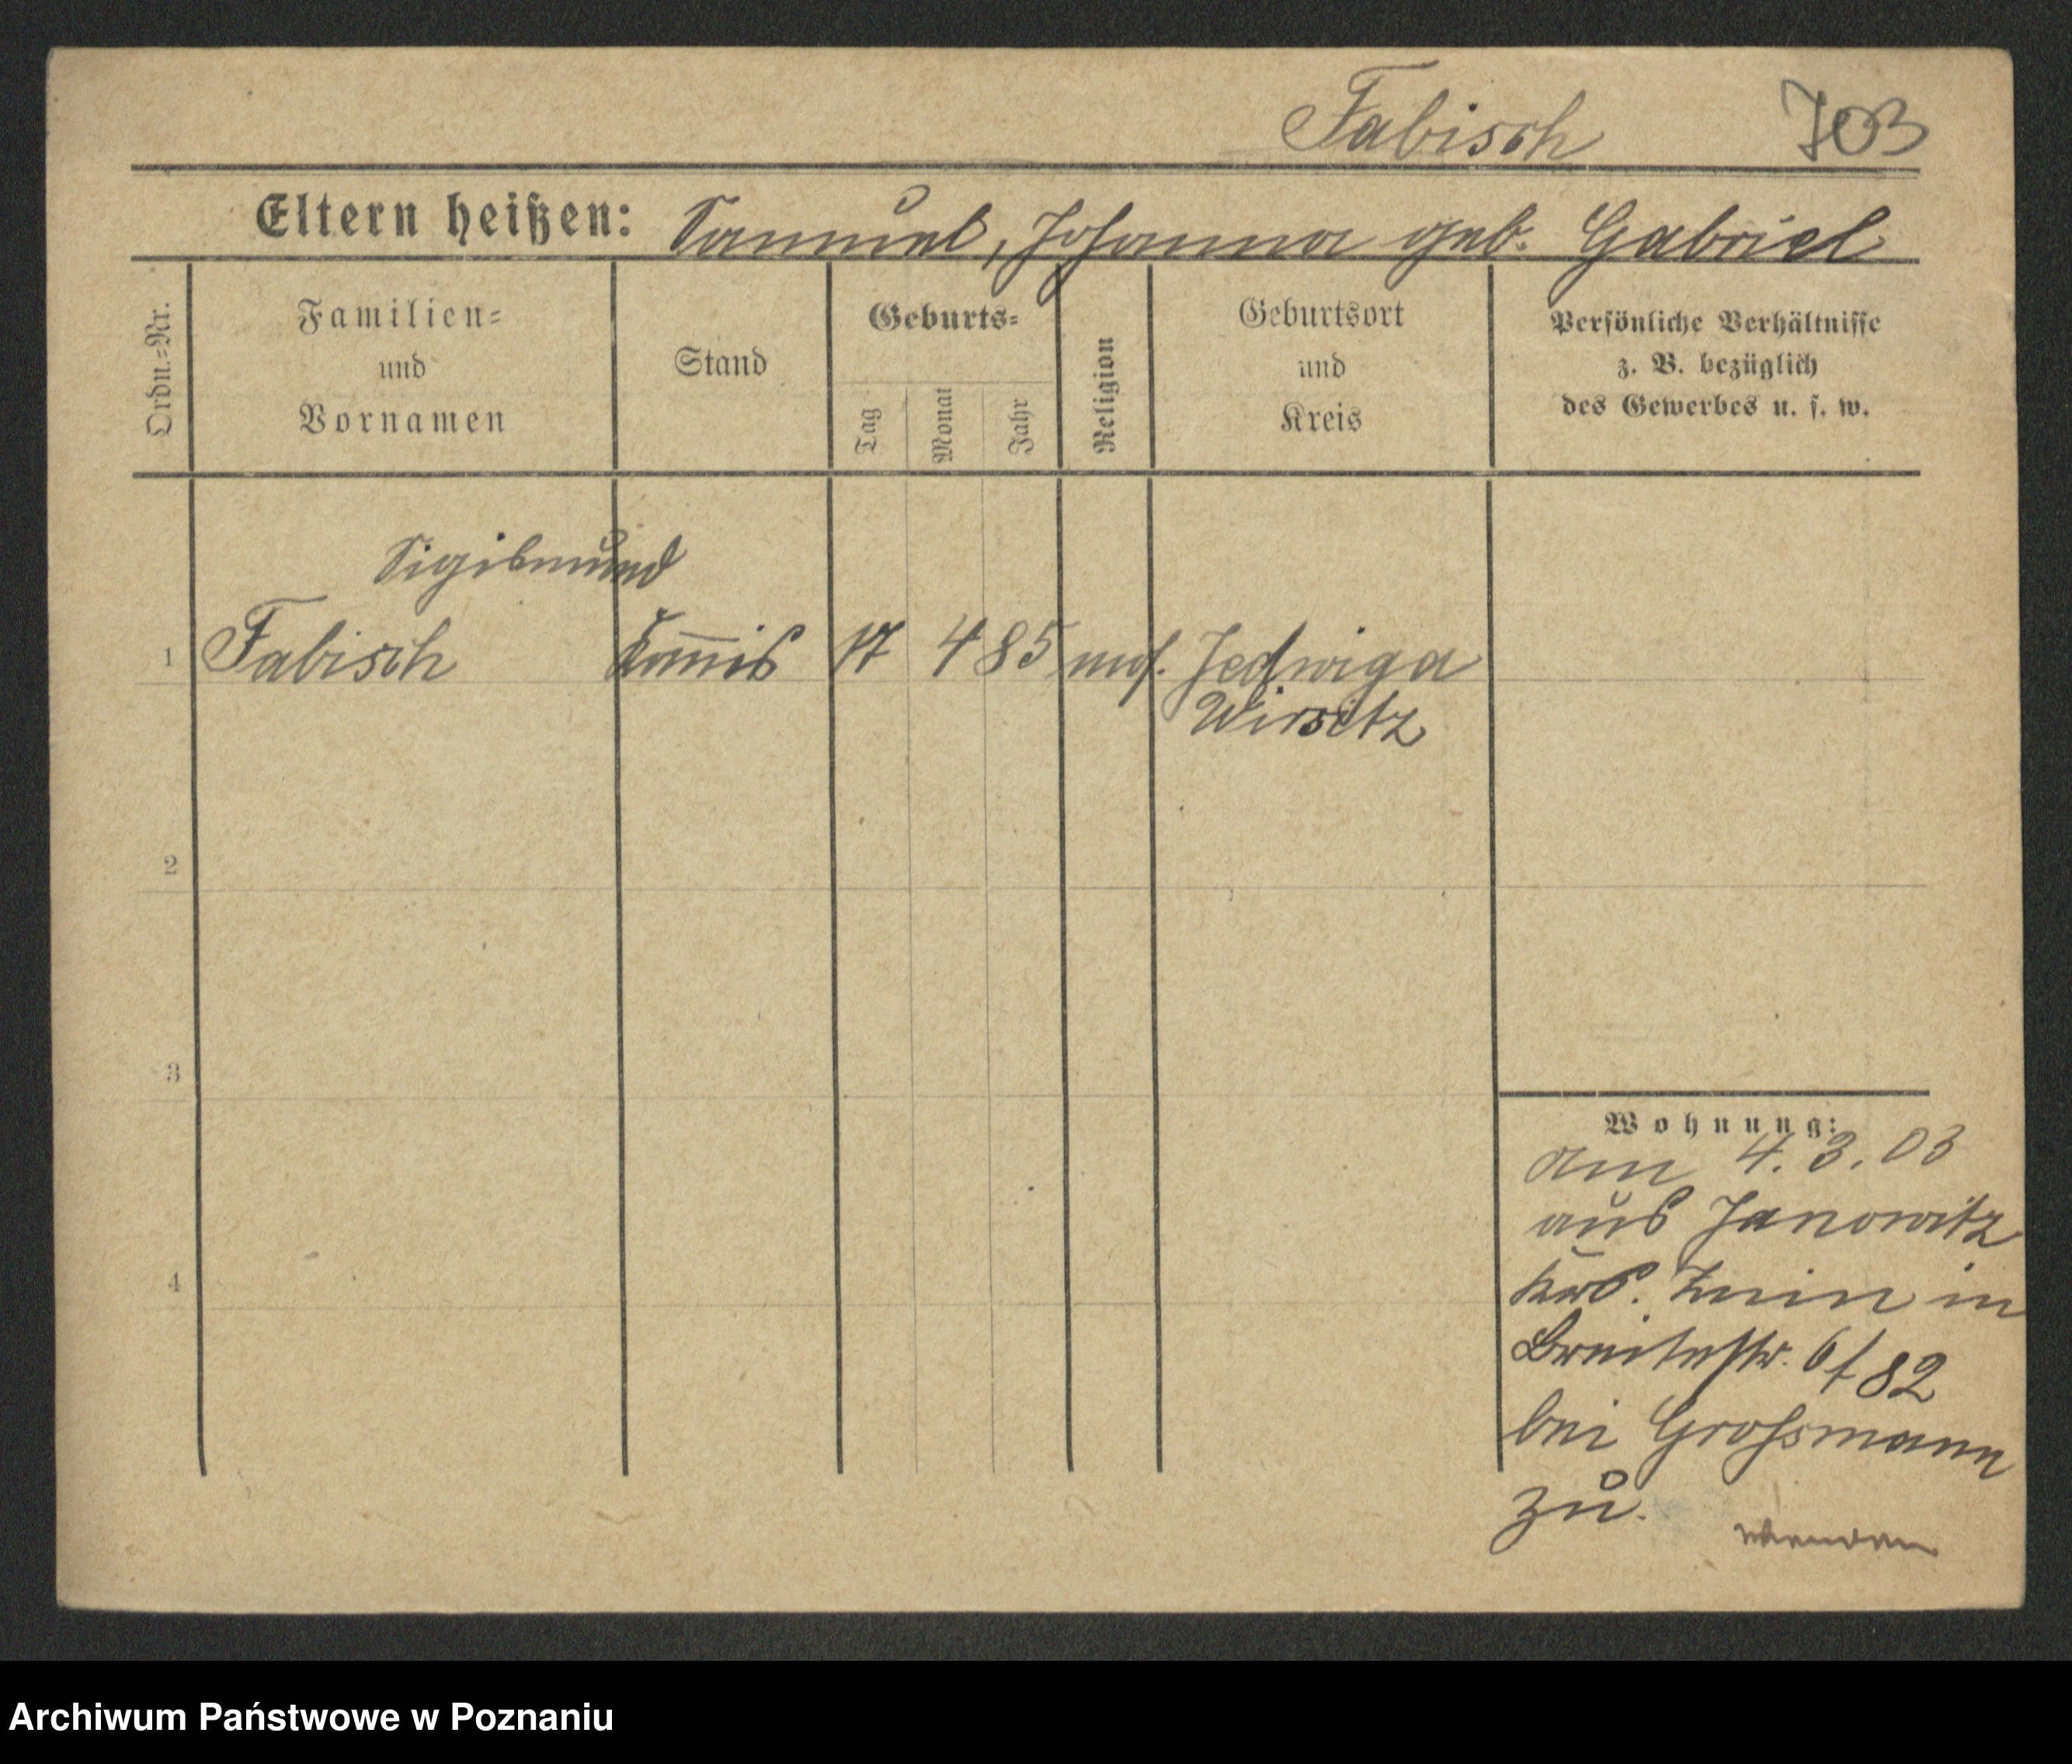 Fabisch 703
Eltern heißen: Samuel, Johanna geb. Gabriel
Ordn.=Nr.
Familien=
und
Vornamen
Stand
Geburts=
Tag
Monat
Jahr
Religion
Geburtsort
und
Kreis
Persönliche Verhältnisse
z. B. bezüglich
des Gewerbes u. s. w.
Sigismund
1 Fabisch Kom̅is 17 4 85 mos. Jedwiga
Wirsitz
2
3
4
Wohnung:
am 4.3.03
aus Janowitz
Krs. Znin in
Breitestr. 6/82
bei Grossmann
zu.
wenden
Archiwum Państwowe w Poznaniu